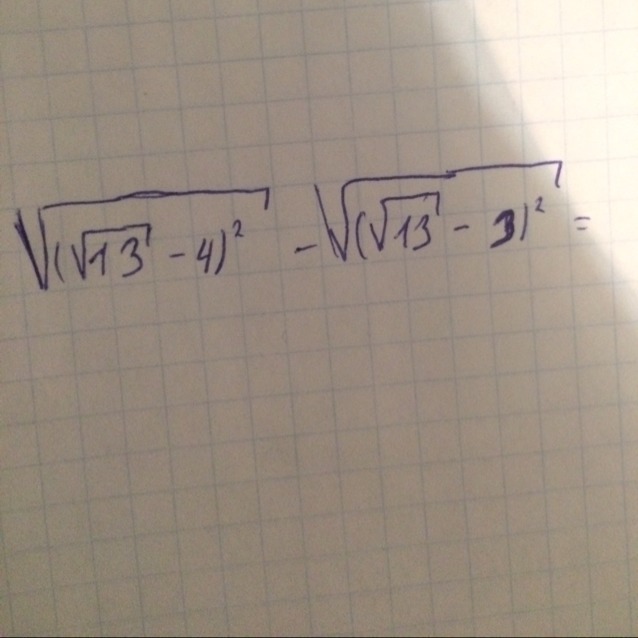 √((√13 - 4)²) - √((√13 - 3)²) =